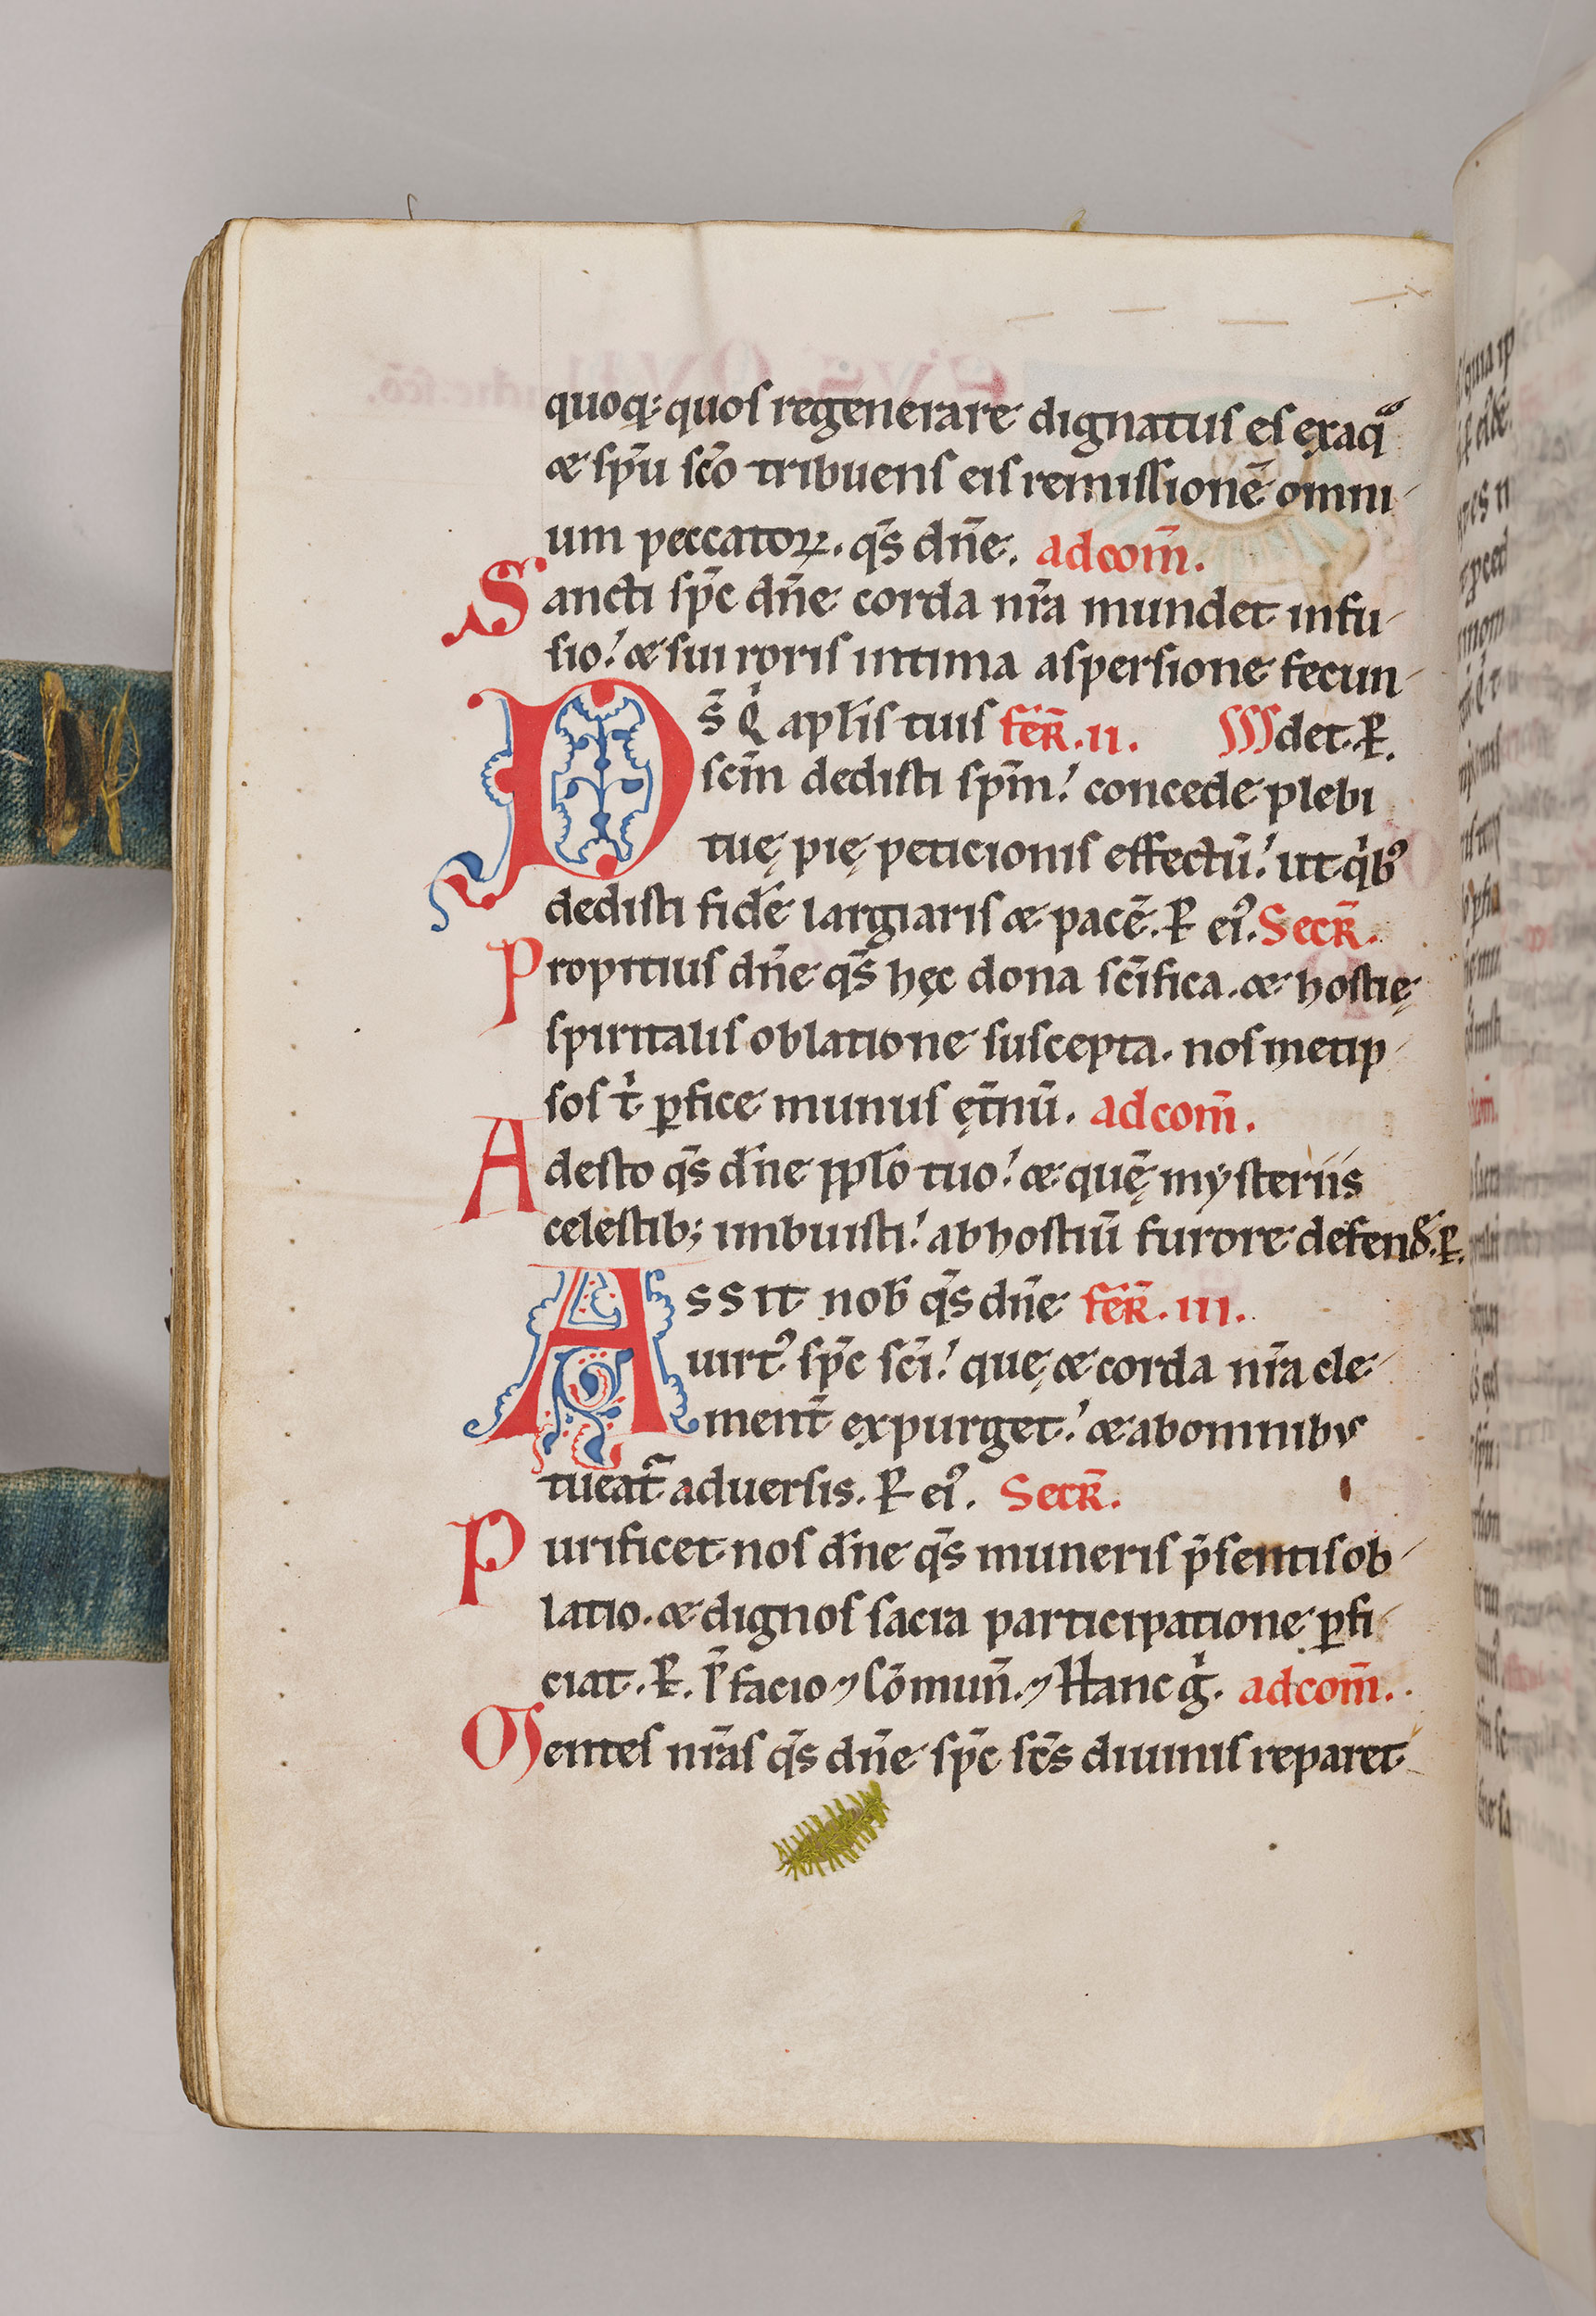 quoq; quos regenerare dignatus es ex aq̄
& sp̄u sc̄o tribuens eis remissionē omni
um peccatoꝝ. qs̄ dn̄e. ad com̄.
Sancti sp̄c dn̄e corda nr̄a mundet infu
sio! & sui roris intima aspersione fecun
Ds̄ qͥ apl̄is tuis fer̄. II. det. P.
scm̄ dedisti sp̄m! concede plebi
tuę pię peticionis effectū! ut qͥbꝰ
dedisti fidē largiaris & pacē. P eiꝰ. Secr̄.
Propitius dn̄e qs̄ hęc dona sc̄ifica. & hostię
spiritalis oblatione suscepta. nosmetip
sos tͥ ꝑfice munus ęt̄nū. ad com̄.
Adesto qs̄ dn̄e ppl̄o tuo! & quę̄ mysteriis
celestib; imbuisti! ab hostiū furore defend̄. P.
Assit nob̄ qs̄ dn̄e fer̄. III.
uirtꝰ sp̄c sc̄i! quę & corda nr̄a cle
ment̄ expurget! & ab omnibus
tueat̄ aduersis. P eiꝰ. Secr̄.
Purificet nos dn̄e qs̄ muneris p̄sentis ob
latio. & dignos sacra participatione ꝑfi
ciat. P. P̄facio ⁊ Cōmun̄. ⁊ Hanc gͥ. ad com̄.
Mentes nr̄as qs̄ dn̄e sp̄c sc̄s diuinis reparet